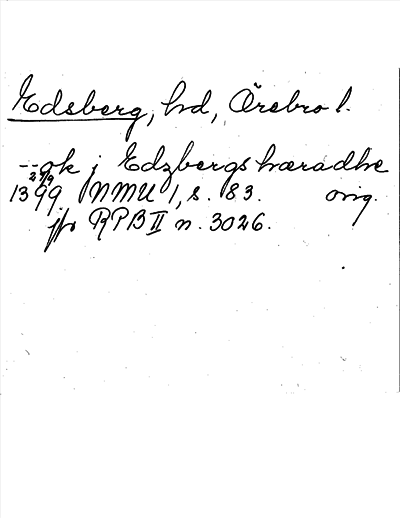 Edsberg, hd, Örebro l.
-- ok j Edzbergs hæradhe
27/9
1399. NMU 1, s. 83. orig.
jfr RPB II n. 3026.